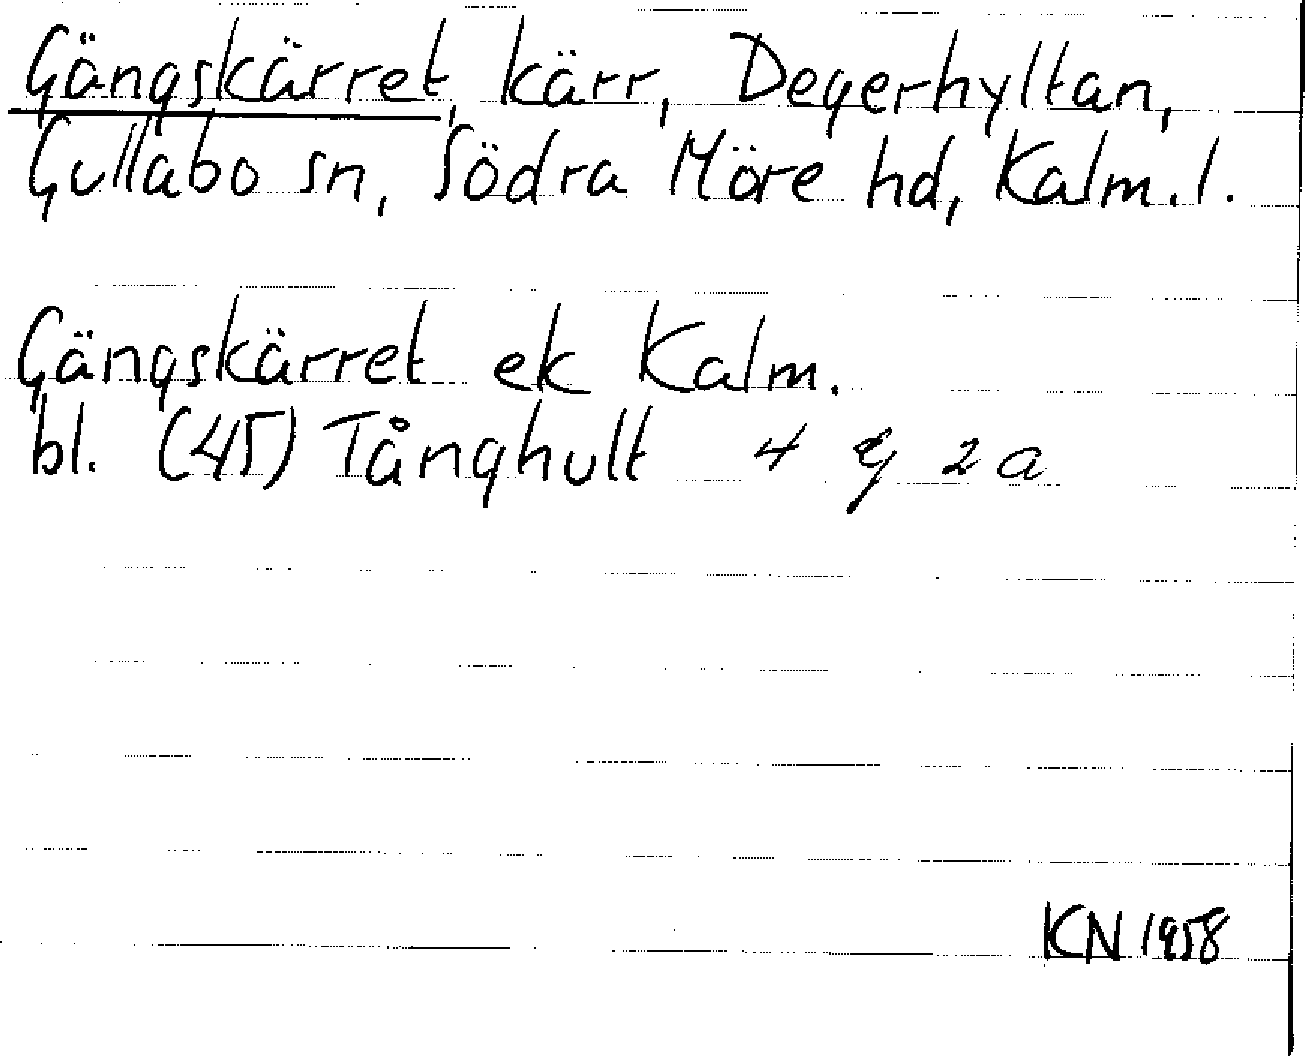 Gängskärret, kärr, Degerhyltan,
Gullabo sn, Södra Möre hd, Kalm. l.
Gängskärret ek Kalm.
bl. (45) Tånghult 4 g 2 a
KN 1958